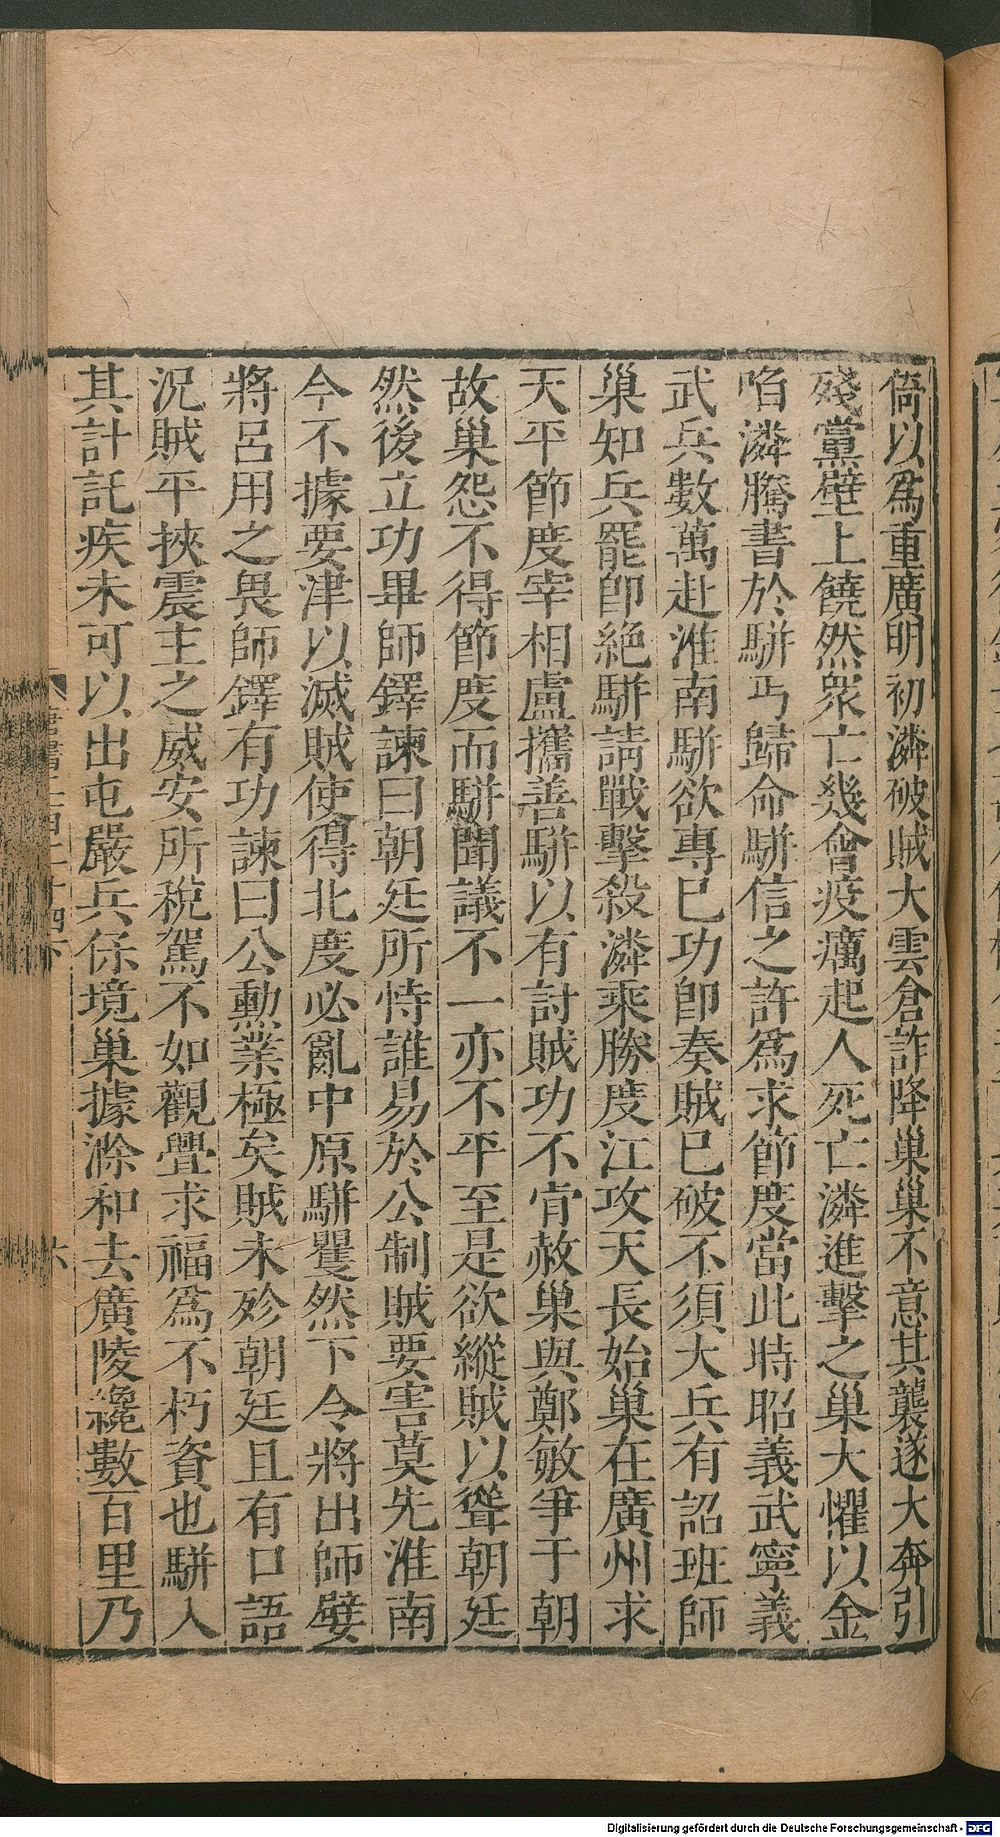 倚以爲重廣明初潾破賊大雲倉詐降巢巢不意其襲遂大奔引
殘黨壁上饒然衆亡幾會疫癘起人死亡潾進擊之巢大懼以金
啗潾騰書於駢丐歸命駢信之許爲求節度當此時昭義武寧義
武兵數萬赴淮南駢欲專已功卽奏賊已破不須大兵有詔班師
巢知兵罷卽絶駢請戰擊殺潾乘勝度江攻天長始巢在廣州求
天平節度宰相盧攜善駢以有討賊功不肯赦巢與鄭敏爭于朝
故巢怨不得節度而駢聞議不一亦不平至是欲縱賊以聳朝廷
然後立功畢師鐸諫曰朝廷所恃誰易於公制賊要害莫先淮南
今不據要津以滅賊使得北度必亂中原駢矍然下令將出師嬖
將呂用之畏師鐸有功諫曰公勳業極矣賊未殄朝廷且有口語
況賊平挾震主之威安所稅駕不如觀釁求福爲不朽資也駢入
其計託疾未可以出屯嚴兵保境巢據滁和去廣陵纔數百里乃
六
Digitalisierung gefördert durch die Deutsche Forschungsgemeinschaft - DFG